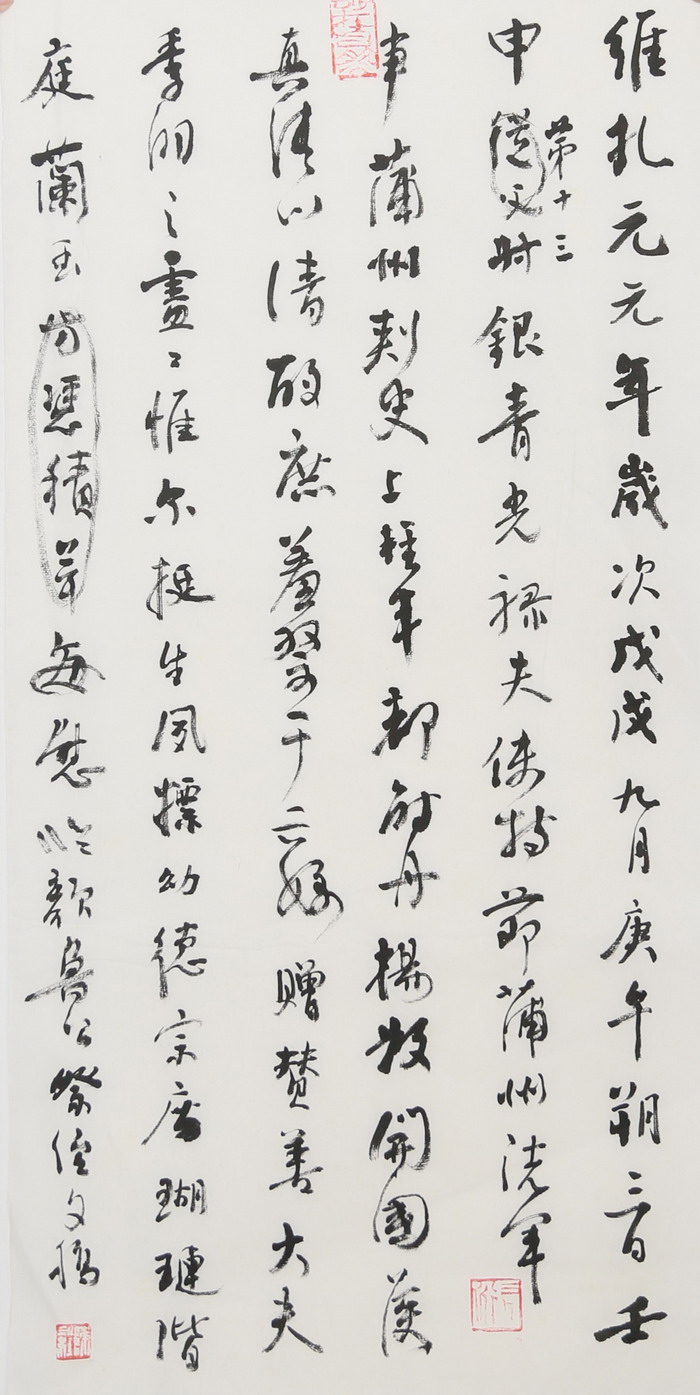 維乾元元年歲次戊戌九月庚午朔三日壬
申第十三從父時銀青光祿夫使持節蒲州諸軍
事蒲州刺史上輕車都尉丹楊縣開國侯
真卿以清酌庶羞祭于亡姪贈贊善大夫
季明之靈曰惟爾挺生夙標幼德宗廟瑚璉階
庭蘭玉方憑積善每慰臨顏魯公祭侄文稿